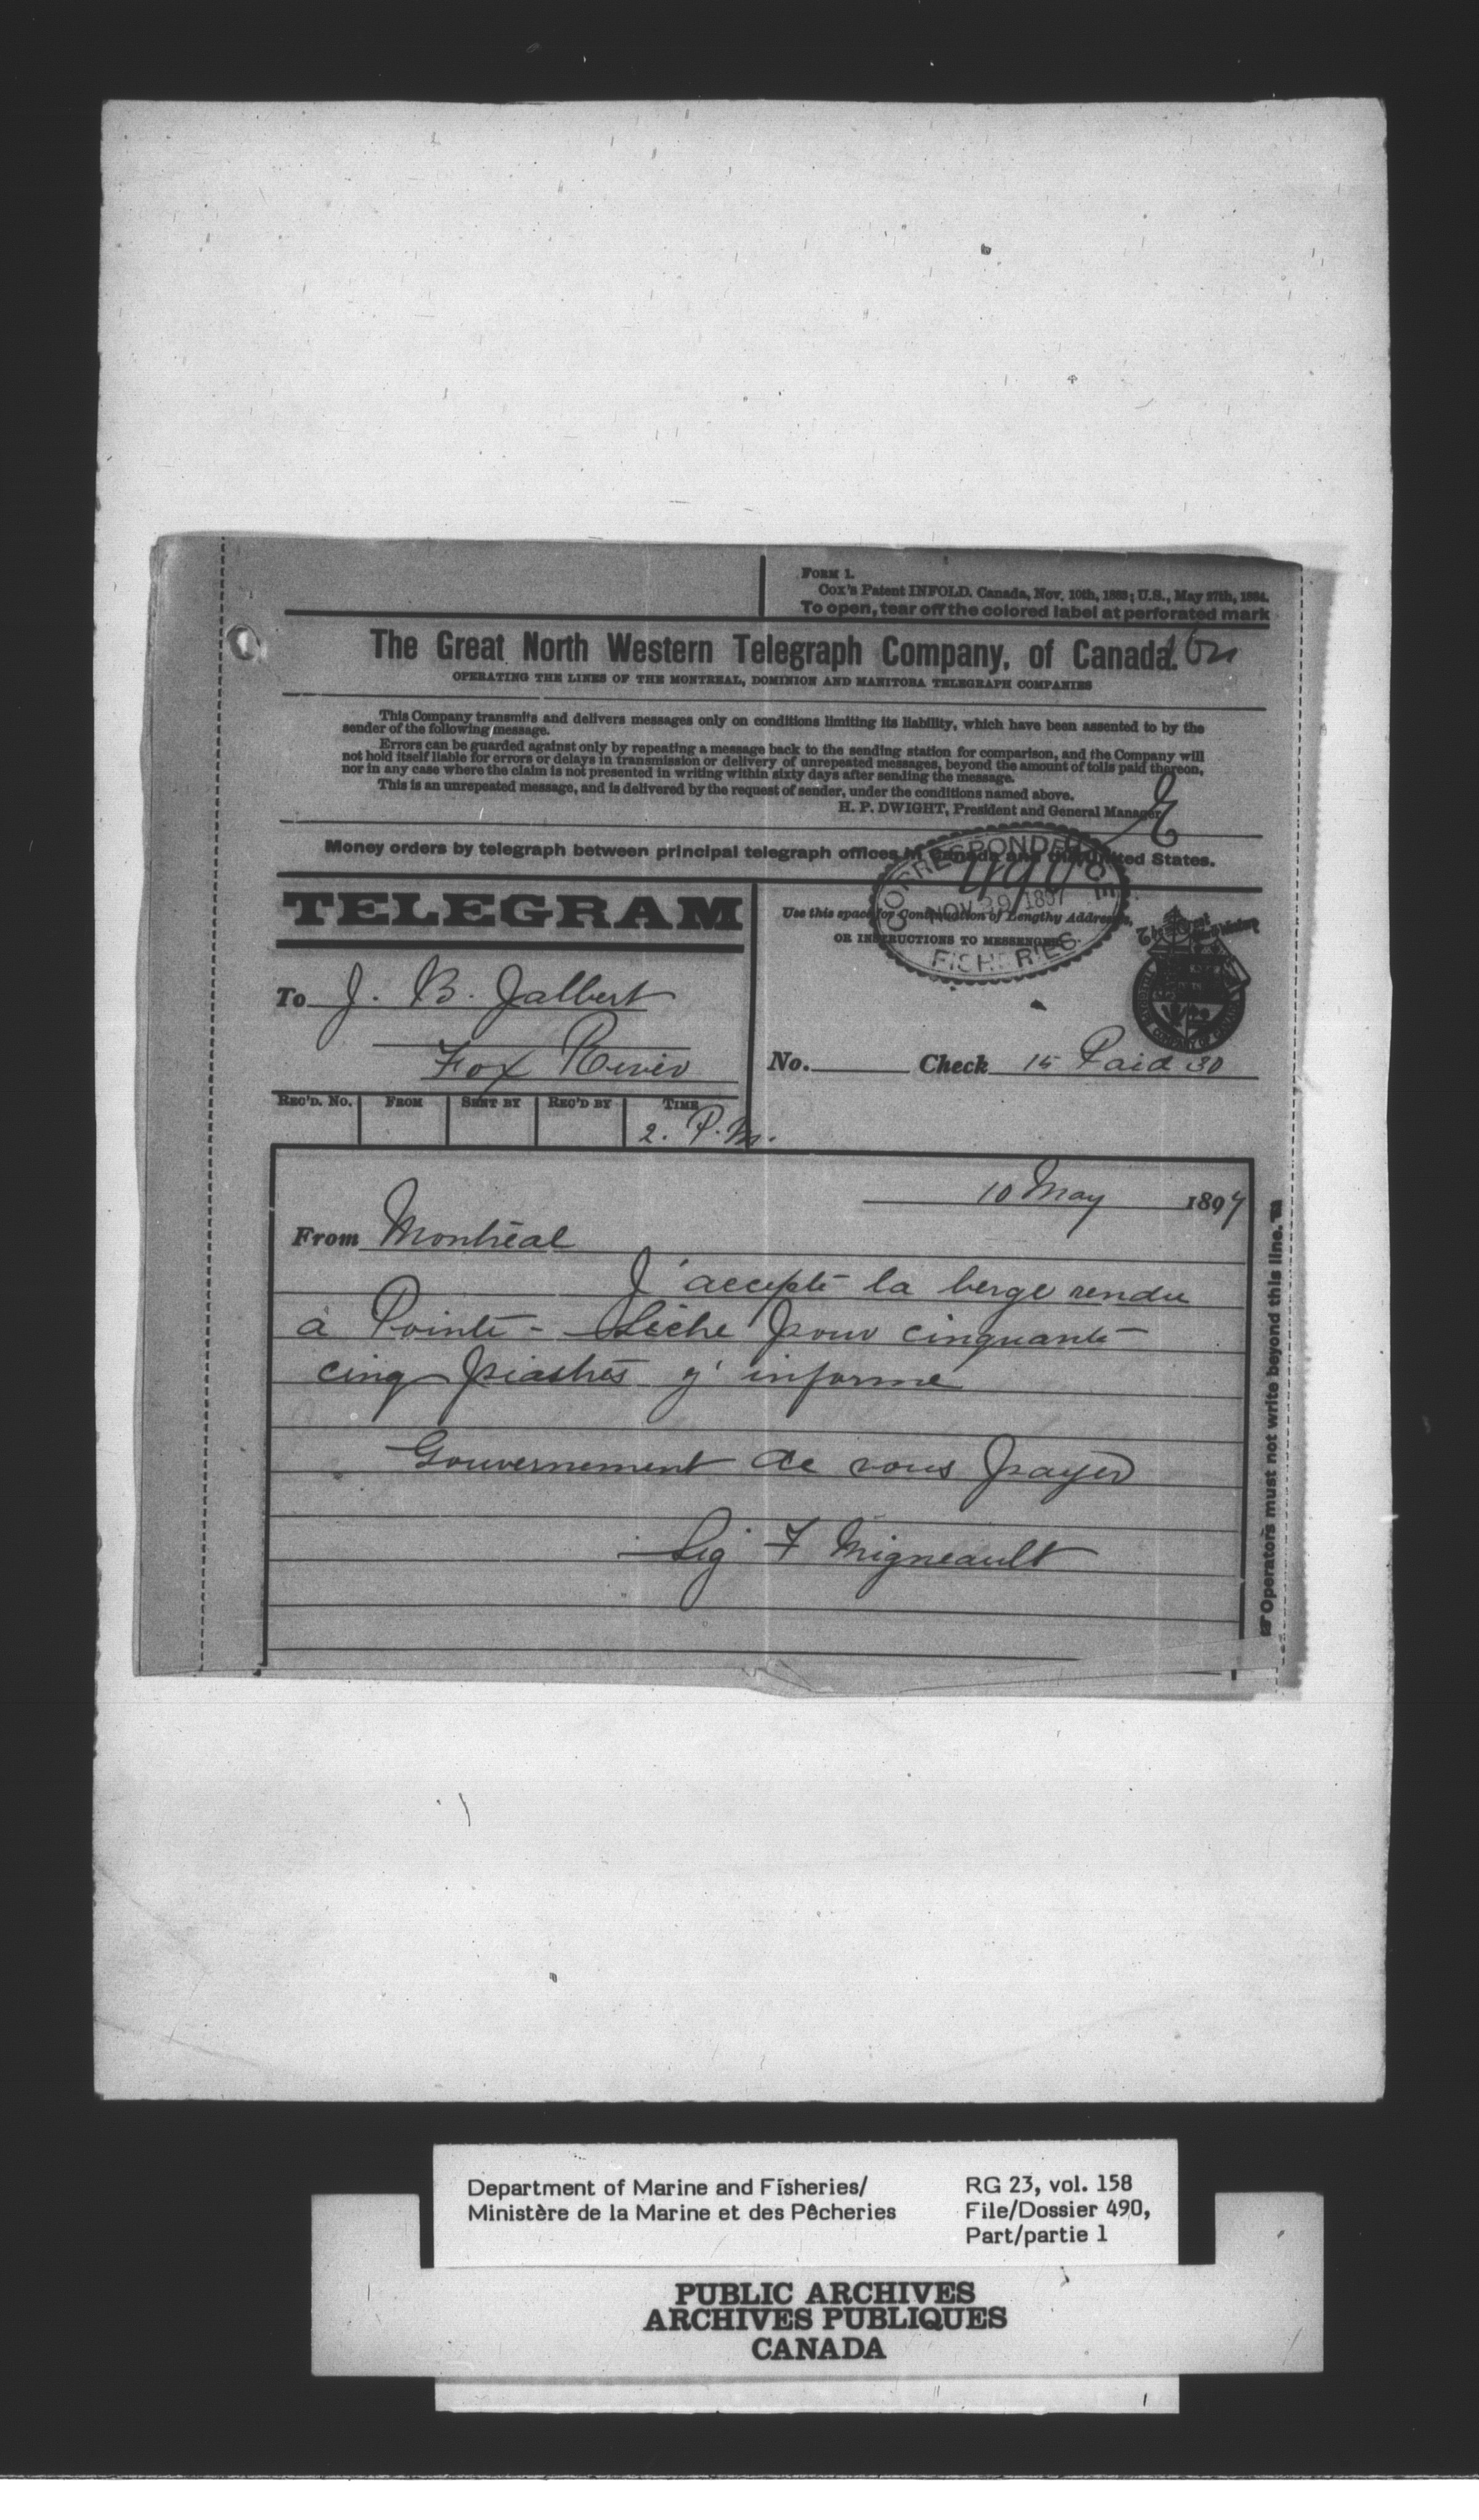 FORM 1.
Cox's Patent INFOLD. Canada, Nov. 10th, 1883; U.S., May 27th, 1884.
To open, tear off the colored label at perforated mark
The Great North Western Telegraph Company, of Canada.
OPERATING THE LINES OF THE MONTREAL, DOMINION AND MANITOBA TELEGRAPH COMPANIES
This Company transmits and delivers messages only on conditions limiting its liability, which have been assented to by the
sender of the following message.
Errors can be guarded against only by repeating a message back to the sending station for comparison, and the Company will
not hold itself liable for errors or delays in transmission or delivery of unrepeated messages, beyond the amount of tolls paid thereon,
nor in any case where the claim is not presented in writing within sixty days after sending the message.
This is an unrepeated message, and is delivered by the request of sender, under the conditions named above.
H. P. DWIGHT, President and General Manager
Money orders by telegraph between principal telegraph offices in Canada and the United States.
CORRESPONDENCE
NOV 29 1897
FISHERIES
TELEGRAM
Use this space for Continuation of Lengthy Addresses,
OR INSTRUCTIONS TO MESSENGER
To J. B. Jalbert
Fox River
No. Check 15 Paid 30
REC'D. NO. FROM SENT BY REC'D BY TIME
2. P.M.
10 May 1897
From Montréal
J'accepte la berge rendu
à Pointe-Sèche pour cinquante
cinq piastres j'informe
Gouvernement de vous payer
Sig F Migneault
Operators must not write beyond this line.
Department of Marine and Fisheries/
Ministère de la Marine et des Pêcheries
RG 23, vol. 158
File/Dossier 490,
Part/partie 1
PUBLIC ARCHIVES
ARCHIVES PUBLIQUES
CANADA